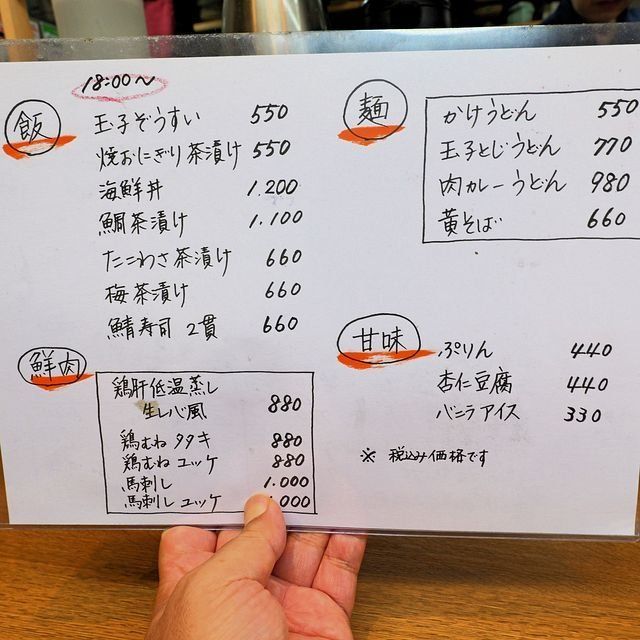 18:00〜
飯
玉子ぞうすい 550
焼おにぎり茶漬け 550
海鮮丼 1.200
鯛茶漬け 1.100
たこわさ茶漬け 660
梅茶漬け 660
鯖寿司 2貫 660
鮮肉
鶏肝低温蒸し
生レバ風 880
鶏むね タタキ 880
鶏むね ユッケ 880
馬刺し 1.000
馬刺し ユッケ .000
麺
かけうどん 550
玉子とじうどん 770
肉カレーうどん 980
黄そば 660
甘味
ぷりん 440
杏仁豆腐 440
バニラアイス 330
※ 税込み価格です